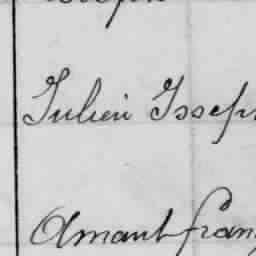 Julien Joseph
Amant Fran